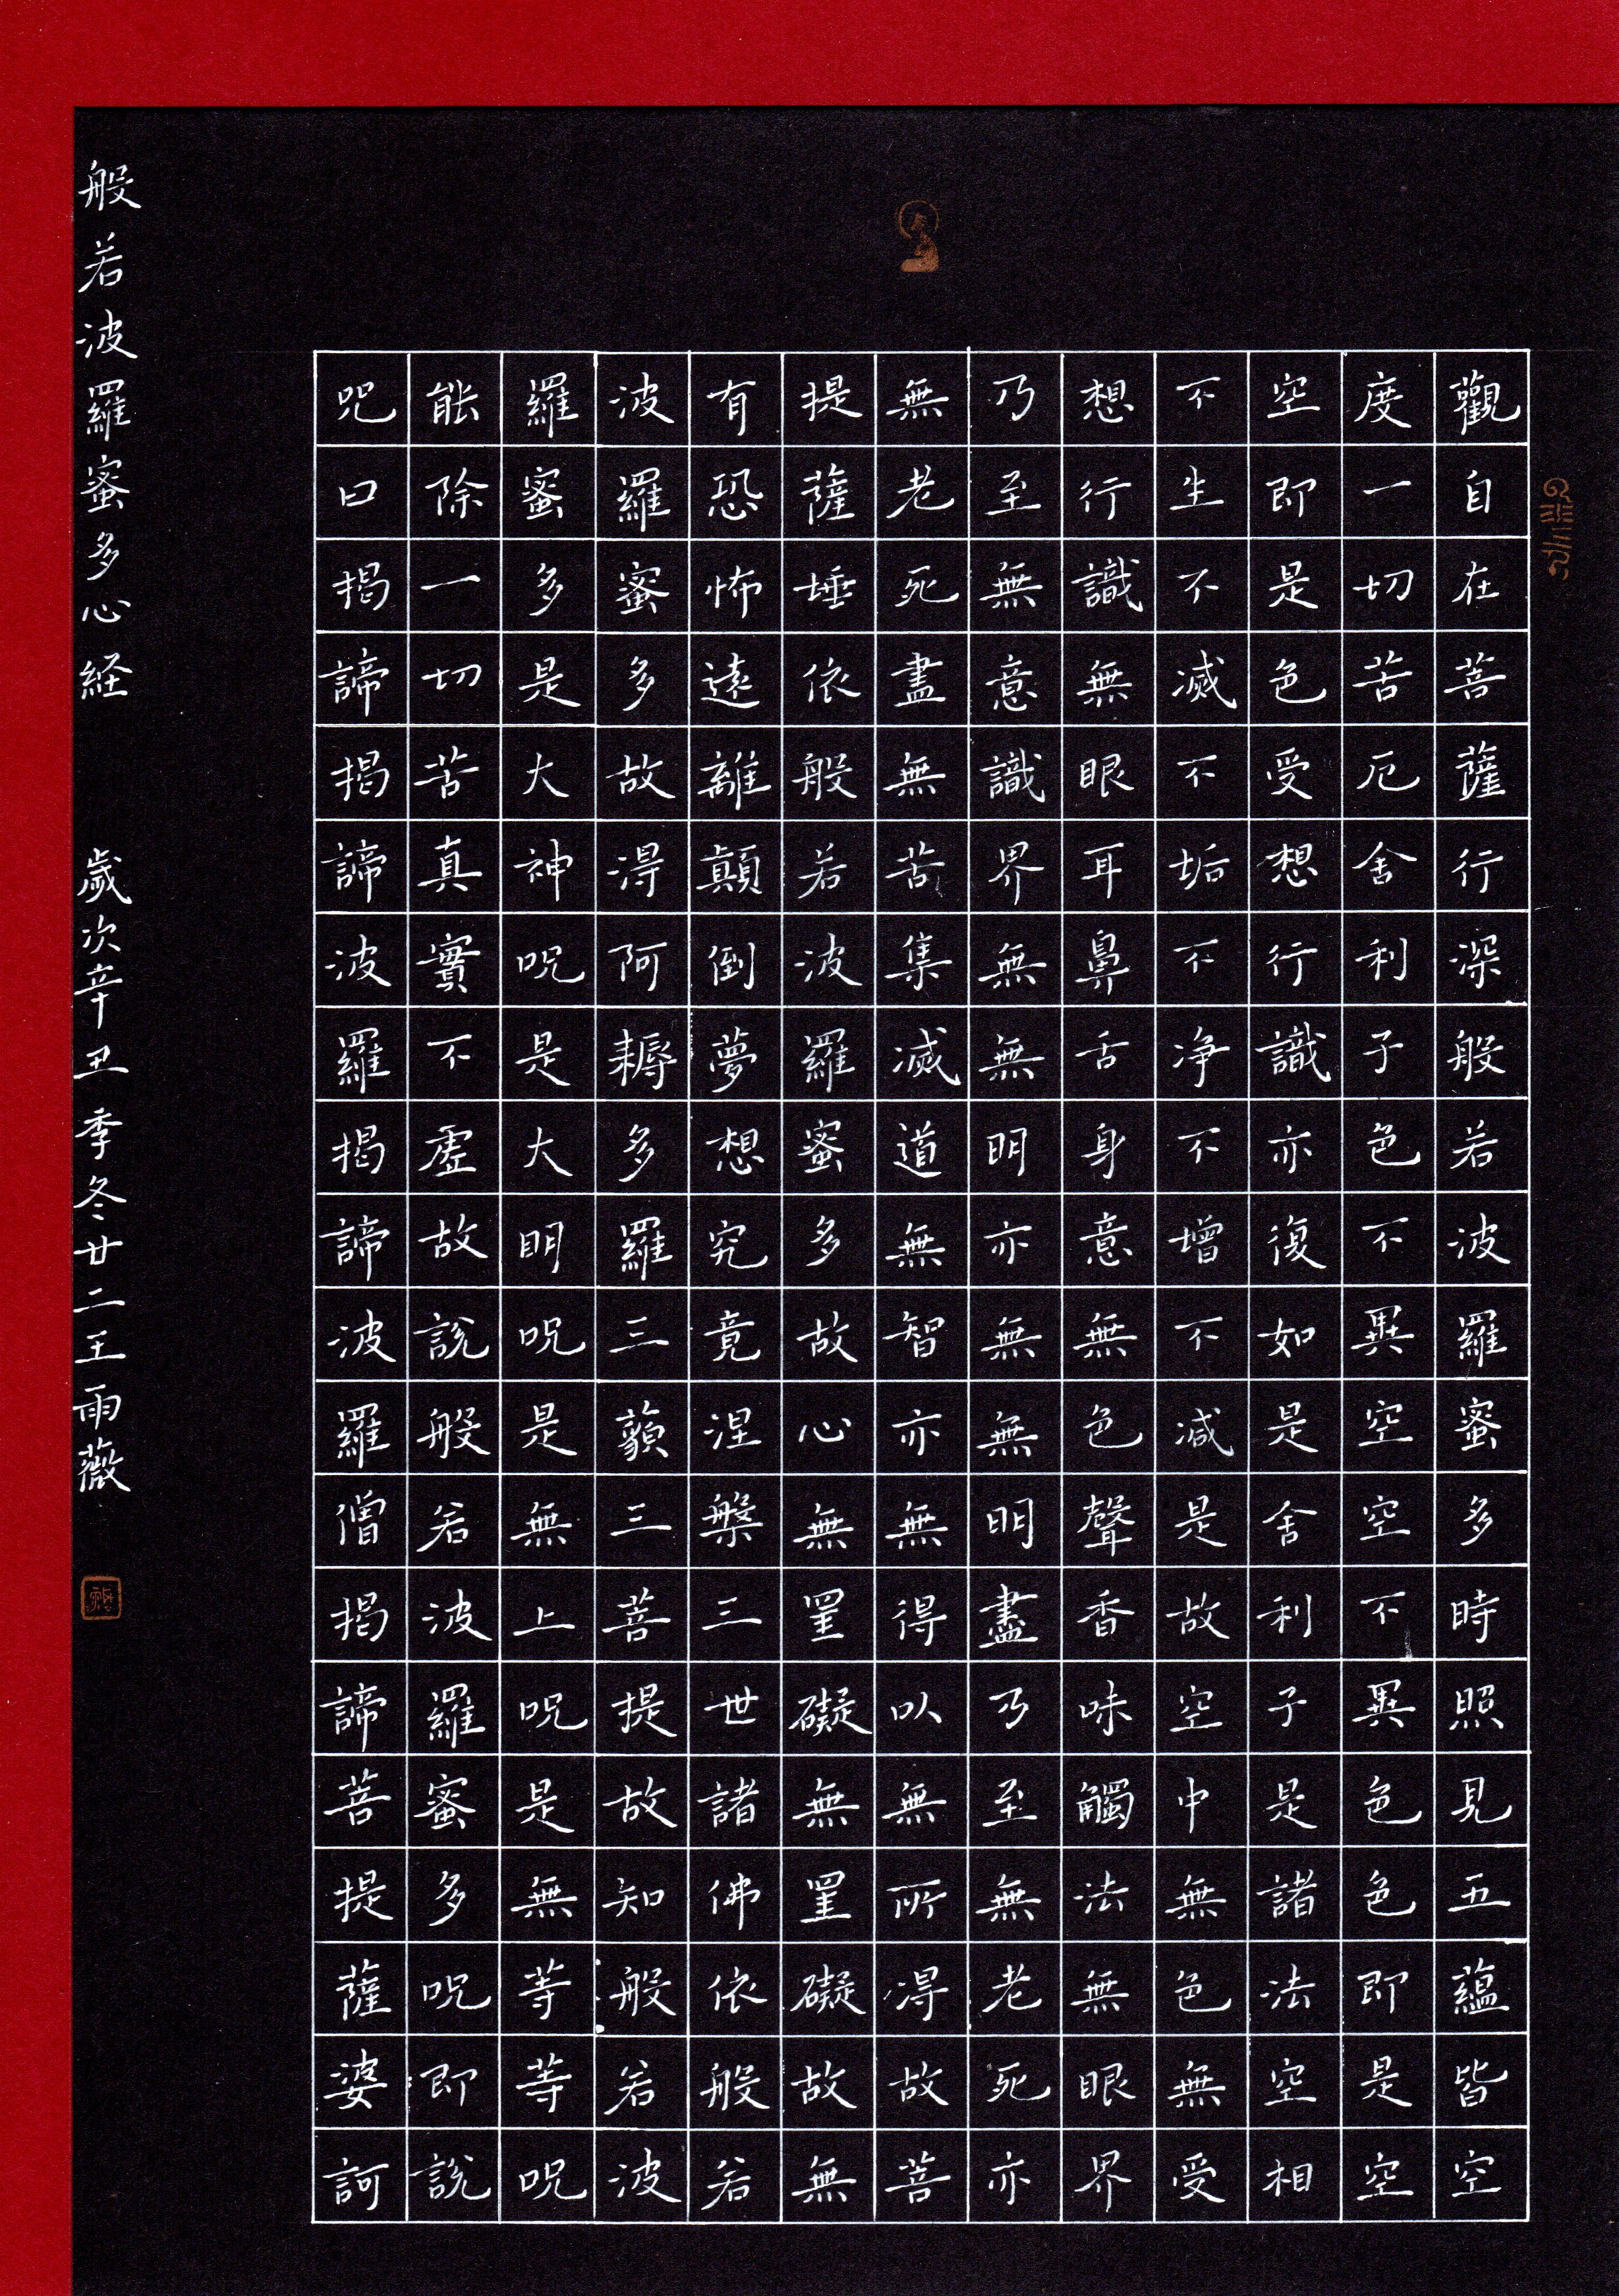 觀自在菩薩行深般若波羅蜜多時照見五蘊皆空
度一切苦厄舍利子色不異空空不異色色即是空
空即是色受想行識亦復如是舍利子是諸法空相
不生不滅不垢不净不增不減是故空中無色無受
想行識無眼耳鼻舌身意無色聲香味觸法無眼界
乃至無意識界無無明亦無無明盡乃至無老死亦
無老死盡無苦集滅道無智亦無得以無所得故菩
提薩埵依般若波羅蜜多故心無罣礙無罣礙故無
有恐怖遠離顛倒夢想究竟涅槃三世諸佛依般若
波羅蜜多故得阿耨多羅三藐三菩提故知般若波
羅蜜多是大神呪是大明呪是無上呪是無等等呪
能除一切苦真實不虛故說般若波羅蜜多呪即說
呪曰揭諦揭諦波羅揭諦波羅僧揭諦菩提薩婆訶
般若波羅蜜多心経 歲次辛丑季冬廿二王雨薇